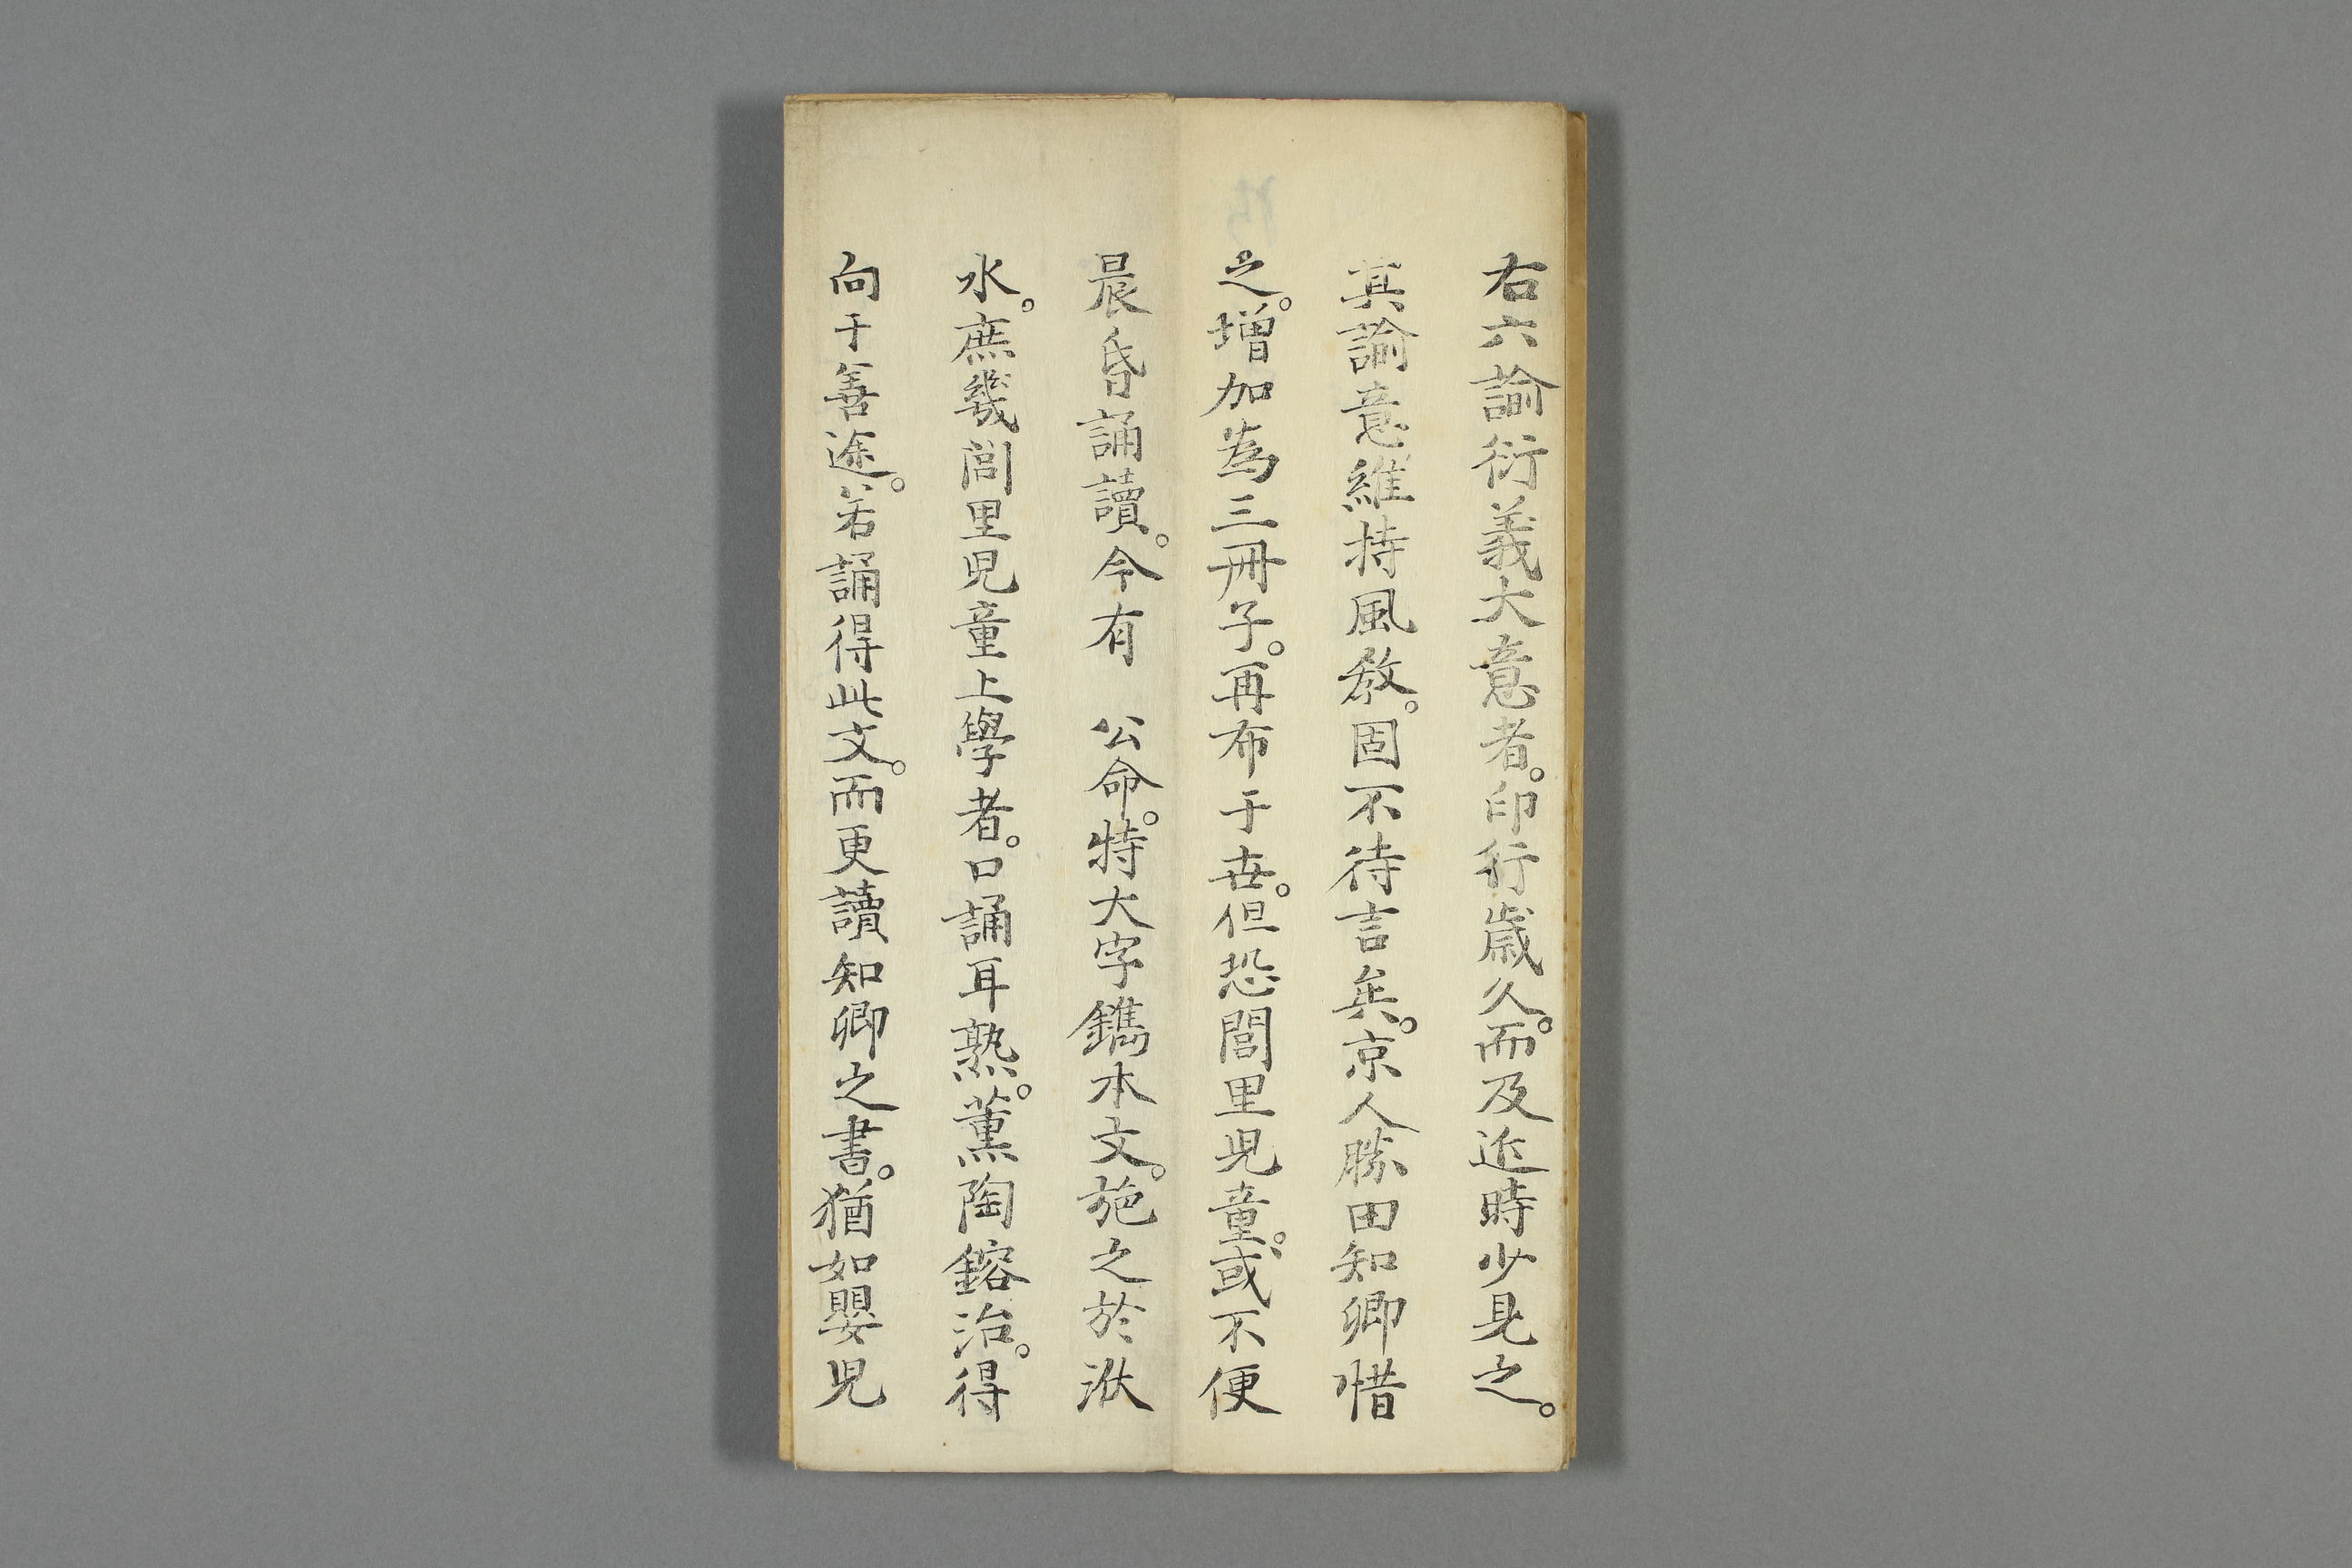 右六諭衍義大意者。印行歲久。而及近時少見之。
其諭意維持風教。固不待言矣。京人勝田知卿惜
之。增加為三冊子。再布于世。但恐閭里児童。或不便
晨昏誦讀。今有 公命。特大字鐫本文。施之於洲
水。庶幾閭里児童上學者。口誦耳熟。薫陶鎔冶。得
向于善途。若誦得此文。而更讀知卿之書。猶如嬰児